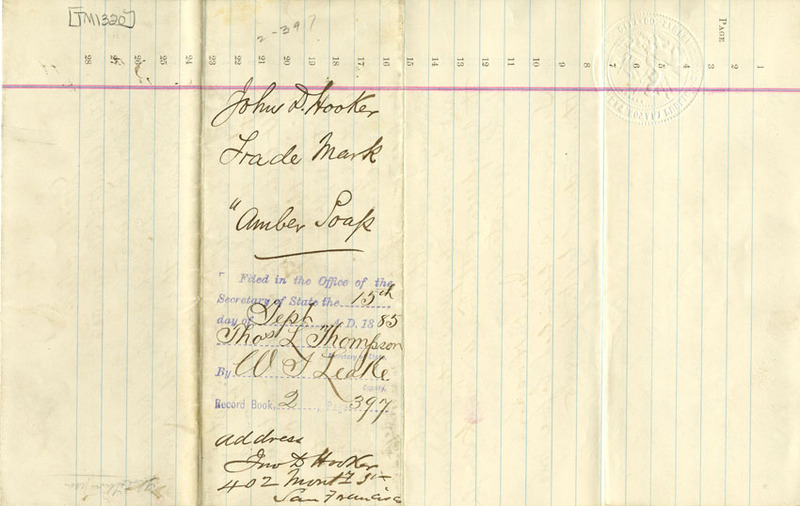 [TM1320]
2-397
PAGE
28 27 26 25 24 23 22 21 20 19 18 17 16 15 14 13 12 11 10 9 8 7 6 5 4 3 2 1
John D. Hooker
Trade Mark
"Amber Soap
Filed in the Office of the
Secretary of State the 15th
day of Sept A.D. 1885
Thos L Thompson
Secretary of State
By W F Leake
Deputy.
Record Book, 2, Page 397
address
Jno D Hooker
402 Montg St
San Francisco